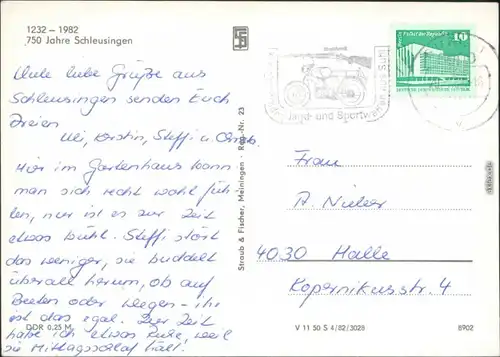 1232 – 1982
750 Jahre Schleusingen
Viele liebe Grüße aus
Schleusingen senden Euch
Dreien
Uli, Kerstin, Steffi u.
Hier im Gartenhaus kann
man sich recht wohl füh-
len, nur ist es zur Zeit
etwas kühl. Steffi stört
das weniger, sie buddelt
überall herum, ob auf
Beeten oder Wegen - ihr
ist das egal. Zur Zeit
habe ich etwas Ruhe, weil
sie Mittagsschlaf hält.
DDR 0,25 M
Straub & Fischer, Meiningen · Reg.-Nr. 23
Jagd- und Sportwaffen
Palast der Republik
10
Frau
A.
4030 Halle
Kopernikusstr. 4
V 11 50 S 4/82/3028
8902